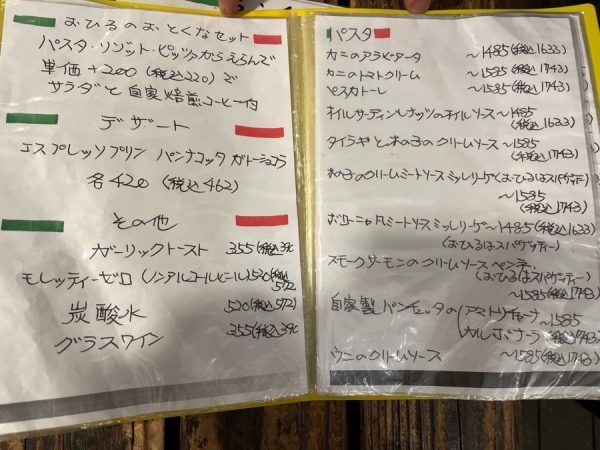 おひるのおとくなセット
パスタ・リゾット・ピッツァからえらんで
単価+200(税込220)で
サラダと自家焙煎コーヒー付
デザート
エスプレッソプリン パンナコッタ ガトーショコラ
各420(税込462)
その他
ガーリックトースト 355(税込39
モレッティーゼロ(ノンアルコールビール)520(税込572
炭酸水 520(税込572)
グラスワイン 355(税込390
パスタ
カニのアラビアータ ~1485(税込1633)
カニのトマトクリーム ~1585(税込1743)
ペスカトーレ ~1585(税込1743)
オイルサーディンとナッツのオイルソース ~1485
(税込1633)
タイラギと木の子のクリームソース ~1585
(税込1743)
木の子のクリームミートソース ミッレリーゲ(おひるはスパゲッティー)
~1585
(税込1743)
ボローニャ風ミートソース ミッレリーゲ ~1485(税込1633)
(おひるはスパゲッティー)
スモークサーモンのクリームソース ペンネ
(おひるはスパゲッティー)
~1585(税込1743)
自家製パンチェッタの(アマトリチャーナ ~1585
カルボナーラ (税込1743)
ウニのクリームソース ~1585(税込1743)